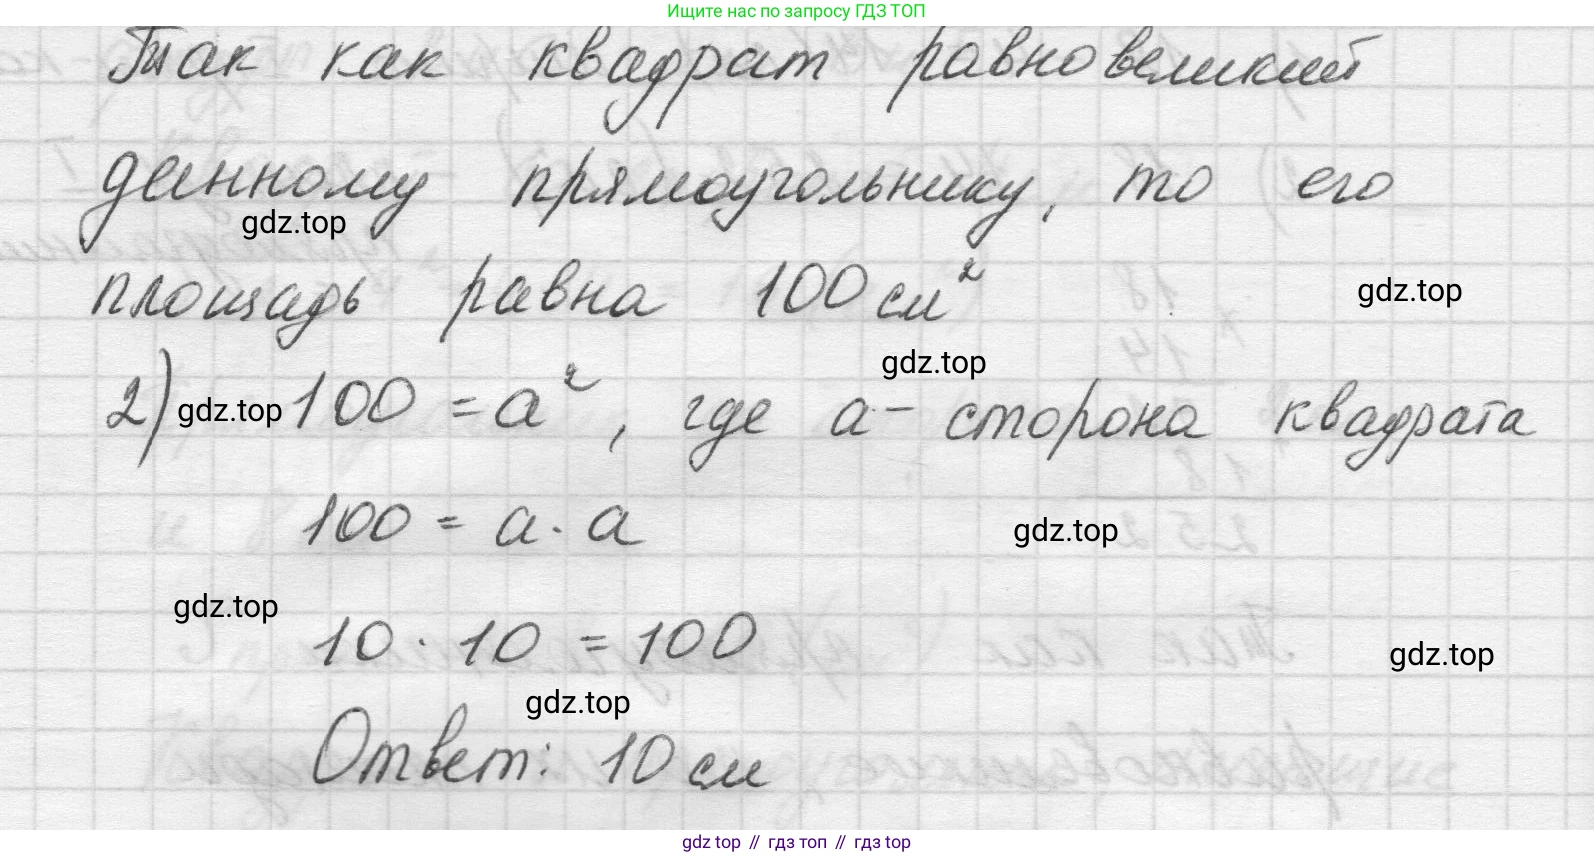 Ищите нас по запросу ГДЗ ТОП
Так как квадрат равновеликий
данному прямоугольнику, то его
gdz.top
площадь равна 100 см²
gdz.top
gdz.top
2) gdz.top 100 = a², где a - сторона квадрата
100 = a · a
gdz.top
gdz.top
10 · 10 = 100
gdz.top
gdz.top
Ответ: 10 см
gdz top // гдз топ // гдз top